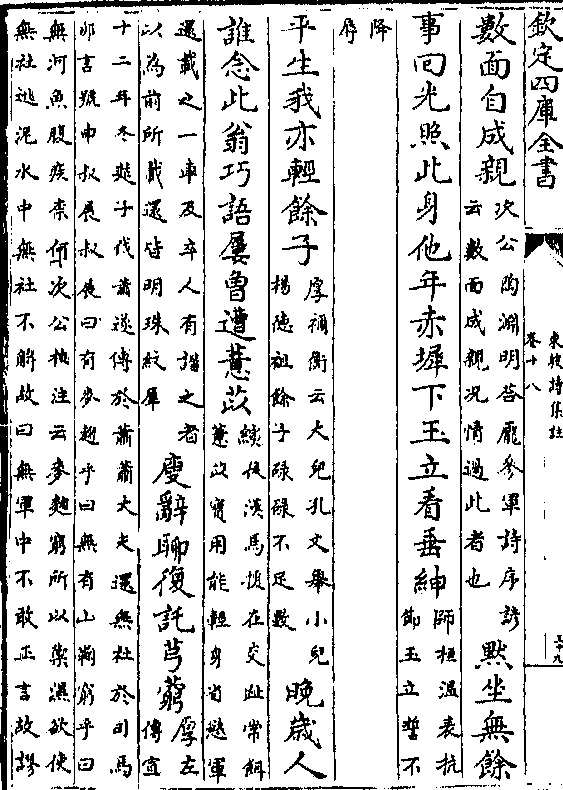 欽定四庫全書
東坡詩集註
卷十八
五十九
數面自成親
次公陶淵明答龐參軍詩序諺
云數面成親况情過此者也
默坐無餘
事回光照此身他年赤墀下玉立看垂紳
師桓温表抗
節玉立誓不
降
辱
平生我亦輕餘子
厚禰衡云大兒孔文舉小兒
楊德祖餘子碌碌不足數
晚歲人
誰念此翁巧語屢曾遭薏苡
縯後漢馬援在交趾常餌
薏苡實用能輕身省慾軍
還載之一車及卒人有譖之者
以為前所載還皆明珠紋犀
廋辭聊復託芎藭
厚左
傳宣
十二年冬楚子伐蕭遂傅於蕭蕭大夫還無社於司馬
卯言號申叔展叔展曰有麥麴乎曰無有山鞠窮乎曰
無河魚腹疾柰何次公杜注云麥麴窮所以禦濕欲使
無社逃泥水中無社不解故曰無軍中不敢正言故謬